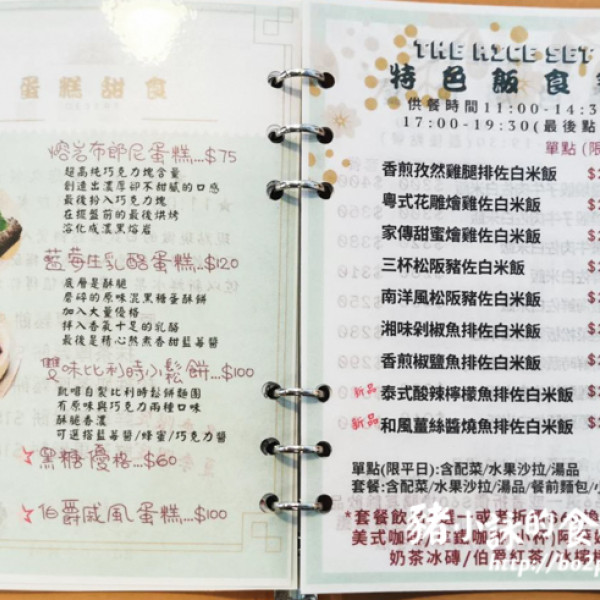 蛋糕甜食
熔岩布郎尼蛋糕...$75
超高純巧克力塊含量
創造出濃厚卻不甜膩的口感
最後粉入巧克力塊
在提盤前的最後烘烤
溶化成濃黑熔岩
藍莓生乳酪蛋糕...$120
底層是酥脆
磨碎的原味混黑糖蛋酥餅
加入大量優格
拌入香氣十足的乳酪
最後是精心熬煮香甜藍莓醬
雙味比利時小鬆餅...$100
凱唱自製比利時鬆餅麵團
有原味與巧克力兩種口味
酥脆香濃
可選搭藍莓醬/蜂蜜/巧克力醬
黑糖優格...$60
伯爵戚風蛋糕...$100
THE RICE SET
特色飯食
供餐時間11:00-14:3
17:00-19:30(最後點
單點 (限
香煎孜然雞腿排佐白米飯
粵式花雕燴雞佐白米飯
家傳甜蜜燴雞佐白米飯
三杯松阪豬佐白米飯
南洋風松阪豬佐白米飯
湘味剁椒魚排佐白米飯
香煎椒鹽魚排佐白米飯
新品 泰式酸辣檸檬魚排佐白米飯
新品 和風薑絲醬燒魚排佐白米飯
單點(限平日):含配菜/水果沙拉/湯品
套餐:含配菜/水果沙拉/湯品/餐前麵包/小
*套餐飲
美式咖啡
奶茶冰磚/伯爵紅茶/冰檸檬
豬小詠的食
http://bo2p